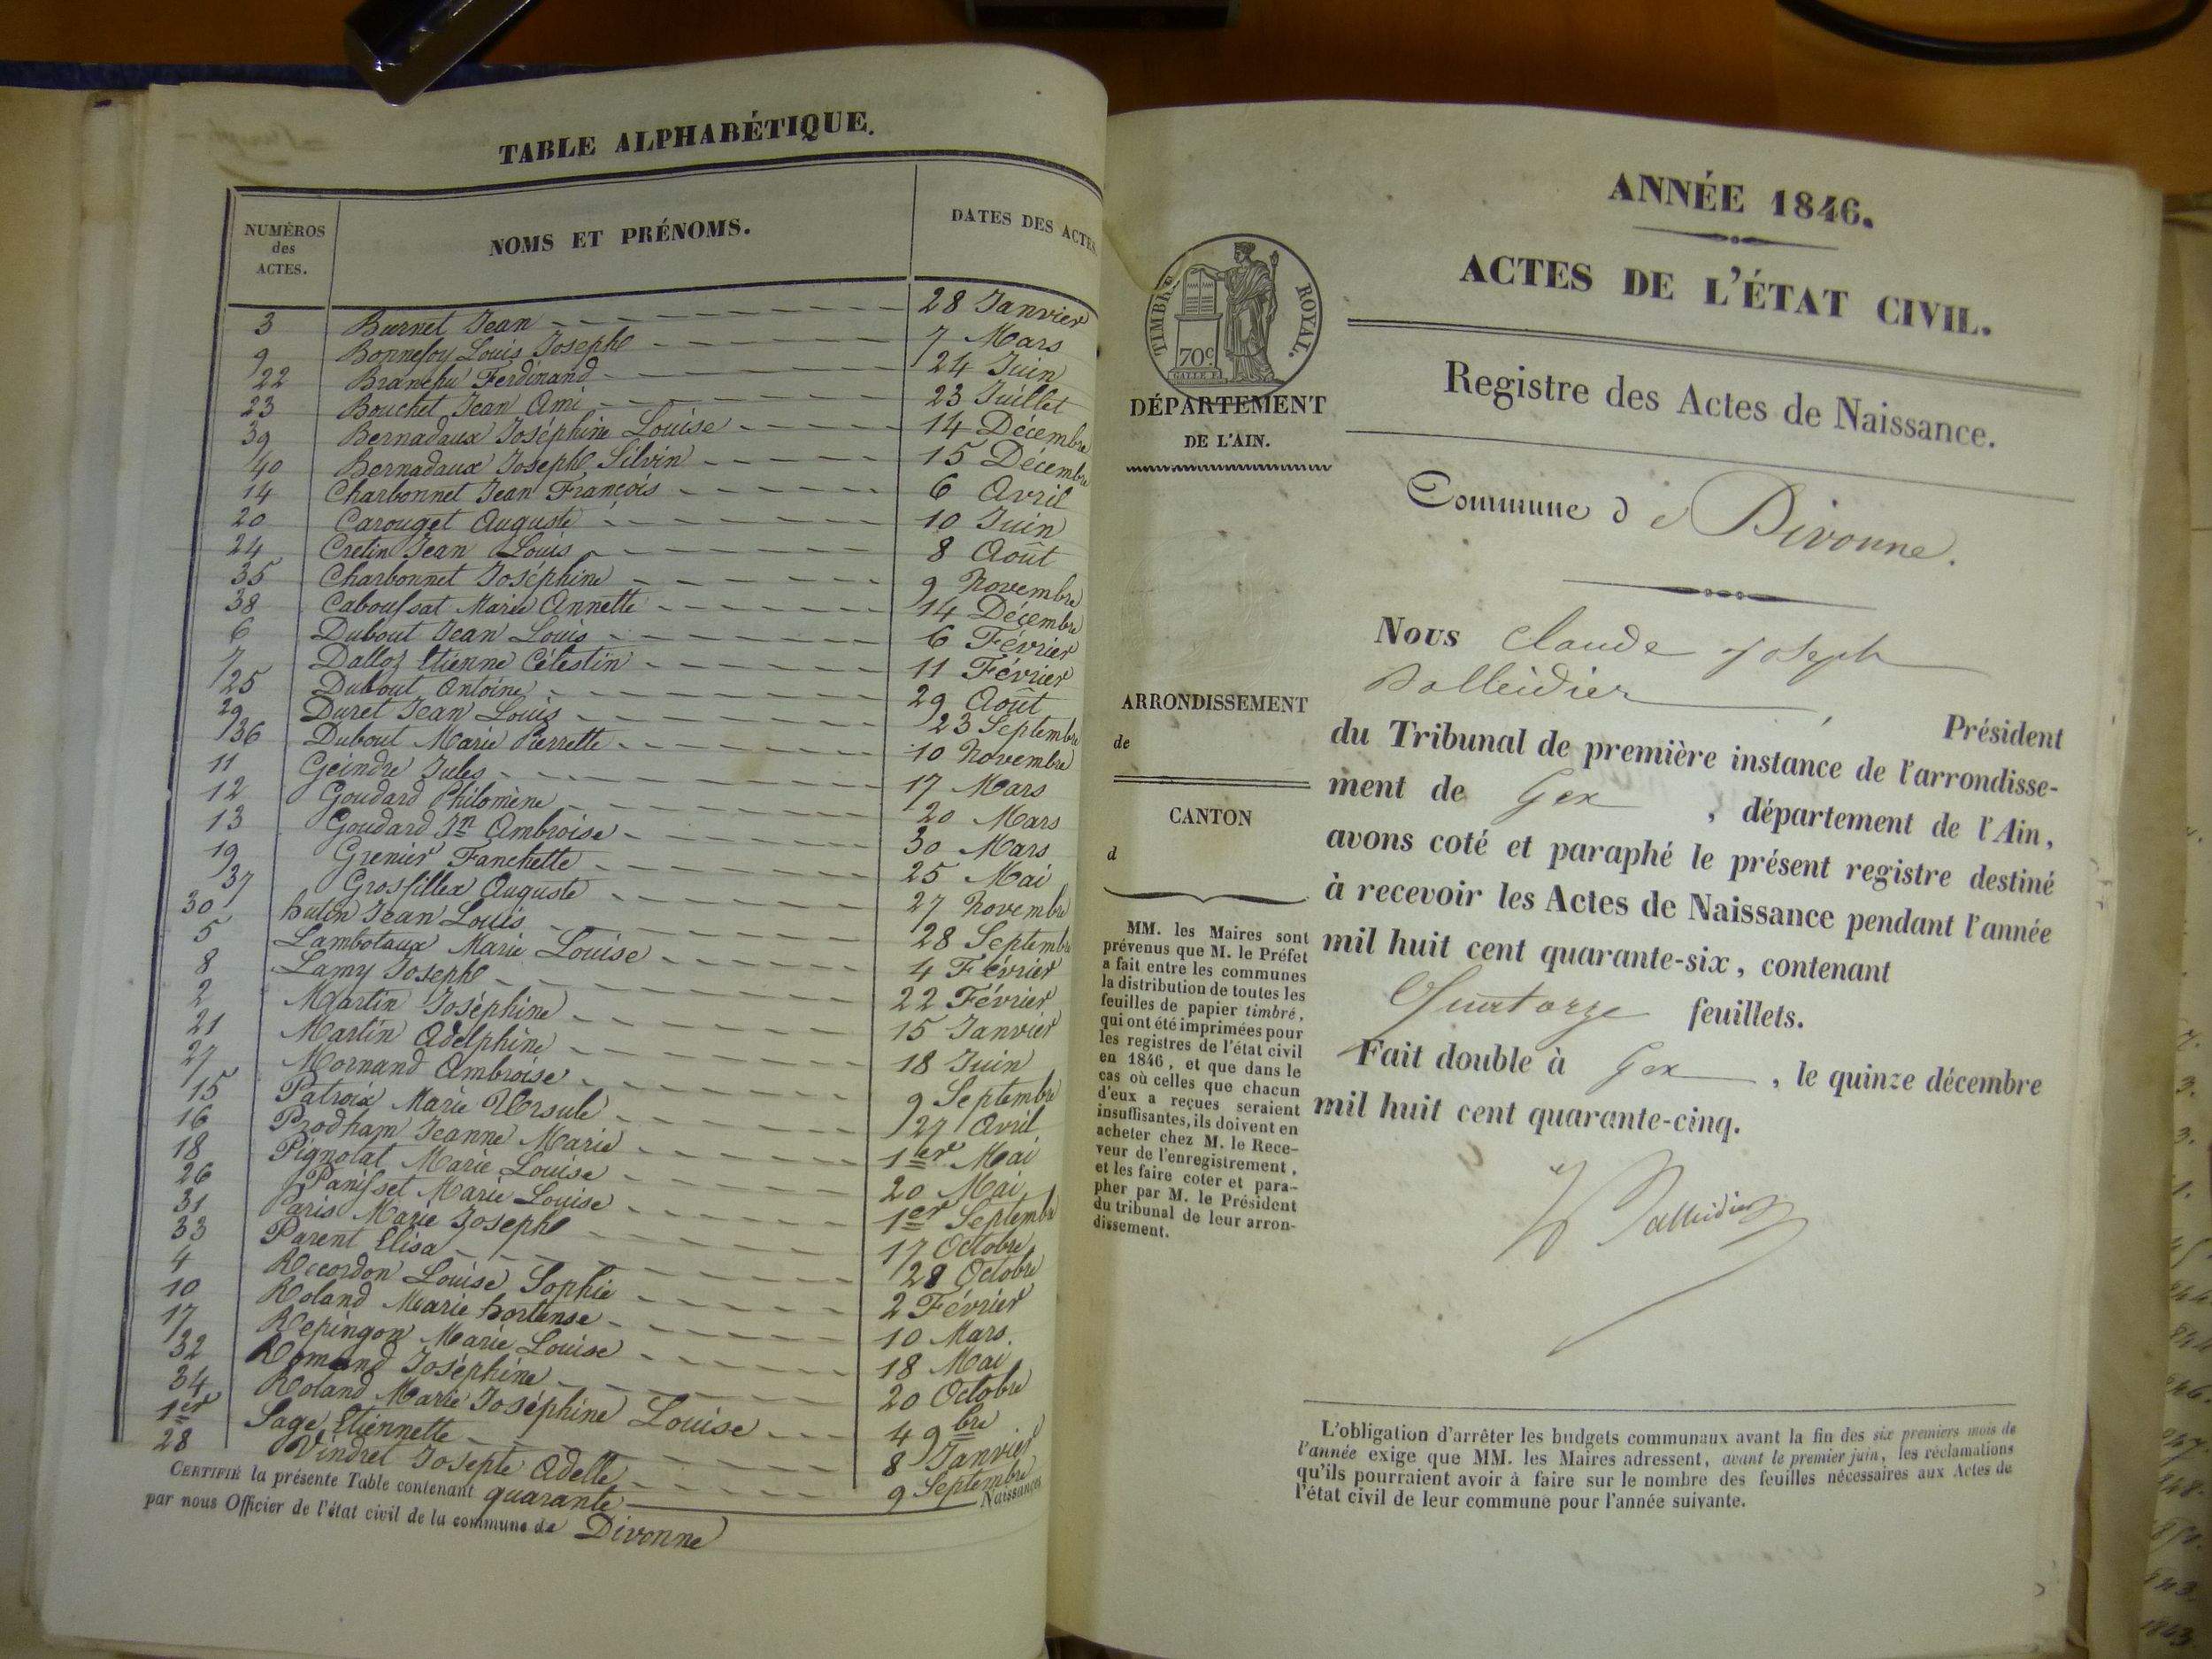 TABLE ALPHABÉTIQUE.
NUMÉROS
des
ACTES.
NOMS ET PRÉNOMS.
DATES DES ACTES.
3 Burnet Jean 28 Janvier
9 Bonnefoy Louis Joseph 7 Mars
22 Ferdinand 24 Juin
23 Bouchet Jean Ami 23 Juillet
39 Bernadaux Joséphine Louise 14 Décembre
40 Bernadaux Joseph Silvin 15 Décembre
14 Charbonnet Jean François 6 Avril
20 Carouget Auguste 10 Juin
24 Cretin Jean Louis 8 Août
35 Charbonnet Joséphine 9 Novembre
38 Caboussat Marie Annette 14 Décembre
6 Dubout Jean Louis 6 Février
7 Dalloz Etienne Célestin 11 Février
25 Dubout Antoine 29 Août
29 Duret Jean Louis 23 Septembre
36 Dubout Marie Pierrette 10 Novembre
11 Geindre Jules 17 Mars
12 Goudard Philomène 20 Mars
13 Goudard Jn Ambroise 30 Mars
19 Grenier Fanchette 25 Mai
37 Grosfillex Auguste 27 Novembre
30 hutin Jean Louis 28 Septembre
5 Lambotaux Marie Louise 4 Février
8 Lamy Joseph 22 Février
2 Martin Joséphine 15 Janvier
21 Martin Adelphine 18 Juin
27 Mornand Ambroise 9 Septembre
15 Patroix Marie Ursule 27 Avril
16 Prodham Jeanne Marie 1er Mai
18 Pignolat Marie Louise 20 Mai
26 Panisset Marie Louise 1er Septembre
31 Paris Marie Joseph 17 Octobre
33 Parent Elisa 28 Octobre
4 Recordon Louise Sophie 2 Février
10 Roland Marie hortense 10 Mars.
17 Repingon Marie Louise 18 Mai
32 Romand Joséphine 20 Octobre
34 Roland Marie Joséphine Louise 4 9bre
1er Sage Etiennette 8 Janvier
28 Vindret Josepte Adelle 9 Septembre
CERTIFIÉ la présente Table contenant quarante Naissances
par nous Officier de l'état civil de la commune de Divonne
ANNÉE 1846.
ACTES DE L'ÉTAT CIVIL.
TIMBRE ROYAL.
70c
DÉPARTEMENT
DE L'AIN.
Registre des Actes de Naissance.
Commune de Divonne.
ARRONDISSEMENT
de
CANTON
d
MM. les Maires sont
prévenus que M. le Préfet
a fait entre les communes
la distribution de toutes les
feuilles de papier timbré,
qui ont été imprimées pour
les registres de l'état civil
en 1846, et que dans le
cas où celles que chacun
d'eux a reçues seraient
insuffisantes, ils doivent en
acheter chez M. le Rece-
veur de l'enregistrement,
et les faire coter et para-
pher par M. le Président
du tribunal de leur arron-
dissement.
Nous Claude Joseph
Balleidier Président
du Tribunal de première instance de l'arrondisse-
ment de Gex, département de l'Ain,
avons coté et paraphé le présent registre destiné
à recevoir les Actes de Naissance pendant l'année
mil huit cent quarante-six, contenant
Quatorze feuillets.
Fait double à Gex, le quinze décembre
mil huit cent quarante-cinq.
Balleidier
L'obligation d'arrêter les budgets communaux avant la fin des six premiers mois de
l'année exige que MM. les Maires adressent, avant le premier juin, les réclamations
qu'ils pourraient avoir à faire sur le nombre des feuilles nécessaires aux Actes de
l'état civil de leur commune pour l'année suivante.